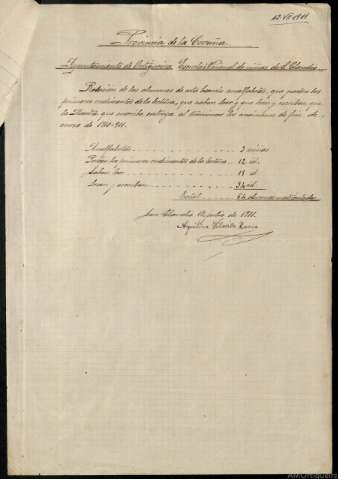 12-VII-1911
Provincia de la Coruña.
Ayuntamiento de Ortigueira Escuela Nacional de niñas de S. Claudio
Relación de los alumnos de esta escuela analfabetos, que poseen los
primeros rudimentos de la lectura, que saben leer y que leen y escriben, que
la Maestra que suscribe entrega al terminar los exámenes de fin de
curso de 1910-911.
Analfabetos . . . . . . . . . . 3 niñas
Poseen los primeros rudimentos de la lectura . . 12 id.
Saben leer . . . . . . . . . . 15 id.
Leen y escriben . . . . . . . . . 34 id.
Total . . . 64 alumnas matriculadas
San Claudio 12 julio de 1911.
Aquilina
AMOrtigueira